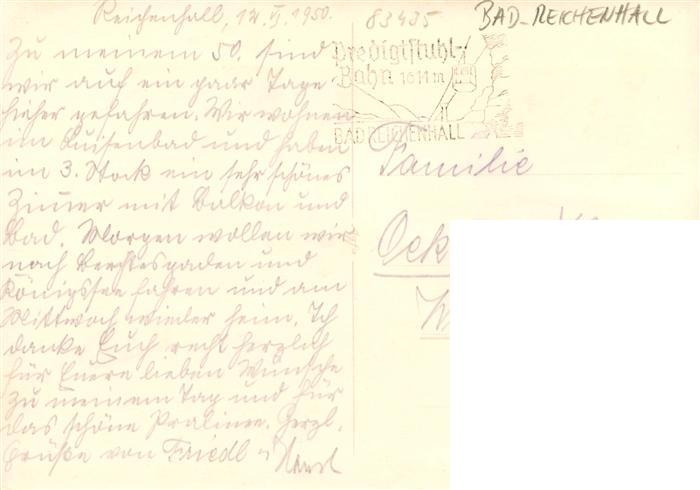 Reichenhall, 12. VI. 1950.
83435
BAD-REICHENHALL
Zu meinem 50. sind
wir auf ein paar Tage
hieher gefahren. Wir wohnen
im Luisenbad und haben
im 3. Stock ein sehr schönes
Zimmer mit Balkon und
Bad. Morgen wollen wir
nach Berchtesgaden und
Königssee fahren und am
Mittwoch wieder heim. Ich
danke Euch recht herzlich
für Euere lieben Wünsche
zu meinem Tag und für
das schöne Pralinee. Herzl.
Grüße von Friedl u
Predigtstuhl-
Bahn 1614m
BAD REICHENHALL
Familie
Oek